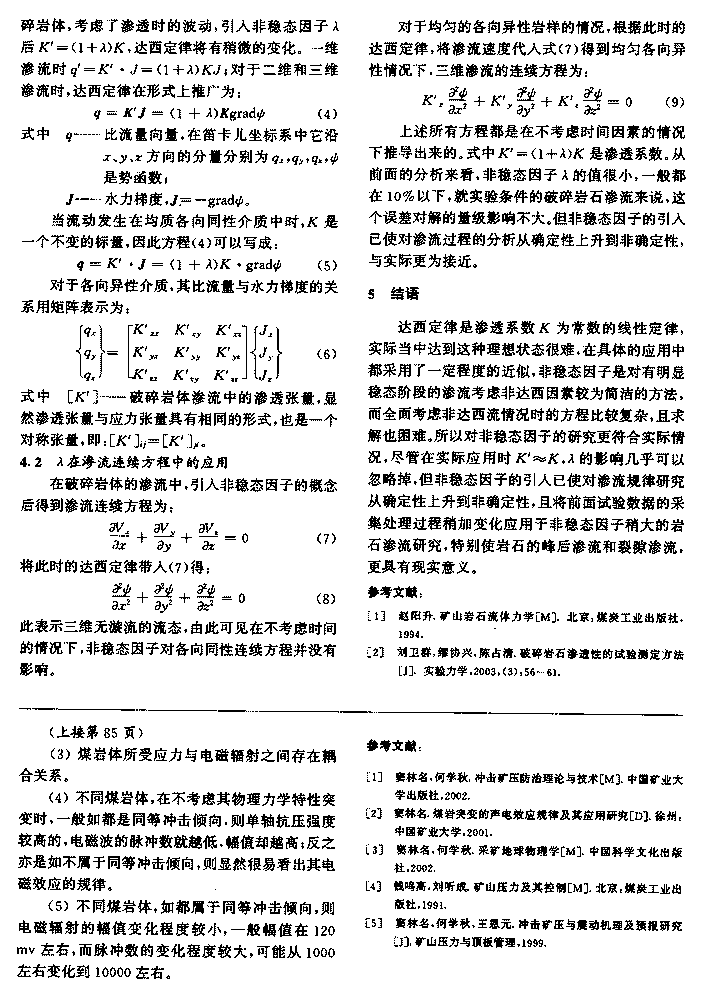 碎岩体,考虑了渗透时的波动,引入非稳态因子 λ
后 K′=(1+λ)K,达西定律将有稍微的变化。一维
渗流时 q′=K′·J=(1+λ)KJ;对于二维和三维
渗流时,达西定律在形式上推广为:
q = K′J = (1 + λ)Kgradψ (4)
式中 q——比流量向量,在笛卡儿坐标系中它沿
x、y、z 方向的分量分别为 qx,qy,qz,ψ
是势函数;
J——水力梯度,J=－gradψ。
当流动发生在均质各向同性介质中时,K 是
一个不变的标量,因此方程(4)可以写成:
q = K′·J = (1 + λ)K·gradψ (5)
对于各向异性介质,其比流量与水力梯度的关
系用矩阵表示为:
{qx qy qz} = [K′xx K′xy K′xz; K′yx K′yy K′yz; K′zx K′zy K′zz]{Jx Jy Jz} (6)
式中 [K′]——破碎岩体渗流中的渗透张量,显
然渗透张量与应力张量具有相同的形式,也是一个
对称张量,即:[K′]ij=[K′]ji。
4.2 λ在渗流连续方程中的应用
在破碎岩体的渗流中,引入非稳态因子的概念
后得到渗流连续方程为:
∂Vx/∂x + ∂Vy/∂y + ∂Vz/∂z = 0 (7)
将此时的达西定律带入(7)得:
∂²ψ/∂x² + ∂²ψ/∂y² + ∂²ψ/∂z² = 0 (8)
此表示三维无源流的流态,由此可见在不考虑时间
的情况下,非稳态因子对各向同性连续方程并没有
影响。
对于均匀的各向异性岩样的情况,根据此时的
达西定律,将渗流速度代入式(7)得到均匀各向异
性情况下,三维渗流的连续方程为:
K′x ∂²ψ/∂x² + K′y ∂²ψ/∂y² + K′z ∂²ψ/∂z² = 0 (9)
上述所有方程都是在不考虑时间因素的情况
下推导出来的。式中 K′=(1+λ)K 是渗透系数。从
前面的分析来看,非稳态因子 λ 的值很小,一般都
在 10%以下,就实验条件的破碎岩石渗流来说,这
个误差对解的量级影响不大。但非稳态因子的引入
已使对渗流过程的分析从确定性上升到非确定性,
与实际更为接近。
5 结语
达西定律是渗透系数 K 为常数的线性定律,
实际当中达到这种理想状态很难,在具体的应用中
都采用了一定程度的近似,非稳态因子是对有明显
稳态阶段的渗流考虑非达西因素较为简洁的方法,
而全面考虑非达西流情况时的方程比较复杂,且求
解也困难。所以对非稳态因子的研究更符合实际情
况,尽管在实际应用时 K′≈K,λ 的影响几乎可以
忽略掉,但非稳态因子的引入已使对渗流规律研究
从确定性上升到非确定性,且将前面试验数据的采
集处理过程稍加变化应用于非稳态因子稍大的岩
石渗流研究,特别使岩石的峰后渗流和裂隙渗流,
更具有现实意义。
参考文献:
[1] 赵阳升. 矿山岩石流体力学[M]. 北京:煤炭工业出版社,
1994.
[2] 刘卫群,缪协兴,陈占清. 破碎岩石渗透性的试验测定方法
[J]. 实验力学,2003,(3):56-61.
(上接第 85 页)
(3) 煤岩体所受应力与电磁辐射之间存在耦
合关系。
(4) 不同煤岩体,在不考虑其物理力学特性突
变时,一般如都是同等冲击倾向,则单轴抗压强度
较高的,电磁波的脉冲数就越低、幅值却越高;反之
亦是如不属于同等冲击倾向,则显然很易看出其电
磁效应的规律。
(5) 不同煤岩体,如都属于同等冲击倾向,则
电磁辐射的幅值变化程度较小,一般幅值在 120
mv 左右,而脉冲数的变化程度较大,可能从 1000
左右变化到 10000 左右。
参考文献:
[1] 窦林名,何学秋. 冲击矿压防治理论与技术[M]. 中国矿业大
学出版社,2002.
[2] 窦林名. 煤岩突变的声电效应规律及其应用研究[D]. 徐州:
中国矿业大学,2001.
[3] 窦林名,何学秋. 采矿地球物理学[M]. 中国科学文化出版
社,2002.
[4] 钱鸣高,刘听成. 矿山压力及其控制[M]. 北京:煤炭工业出
版社,1991.
[5] 窦林名,何学秋,王恩元. 冲击矿压与震动机理及预报研究
[J]. 矿山压力与顶板管理,1999.